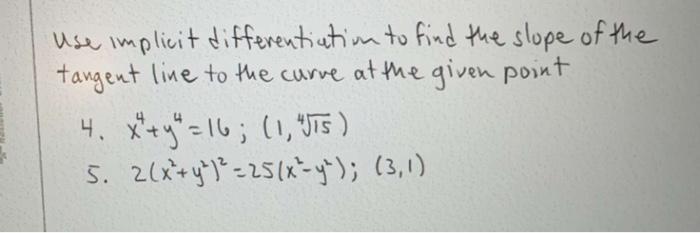 Use implicit differentiation to find the slope of the
tangent line to the curve at the given point
4. x⁴+y⁴=16; (1, ∜15)
5. 2(x²+y²)²=25(x²-y²); (3,1)